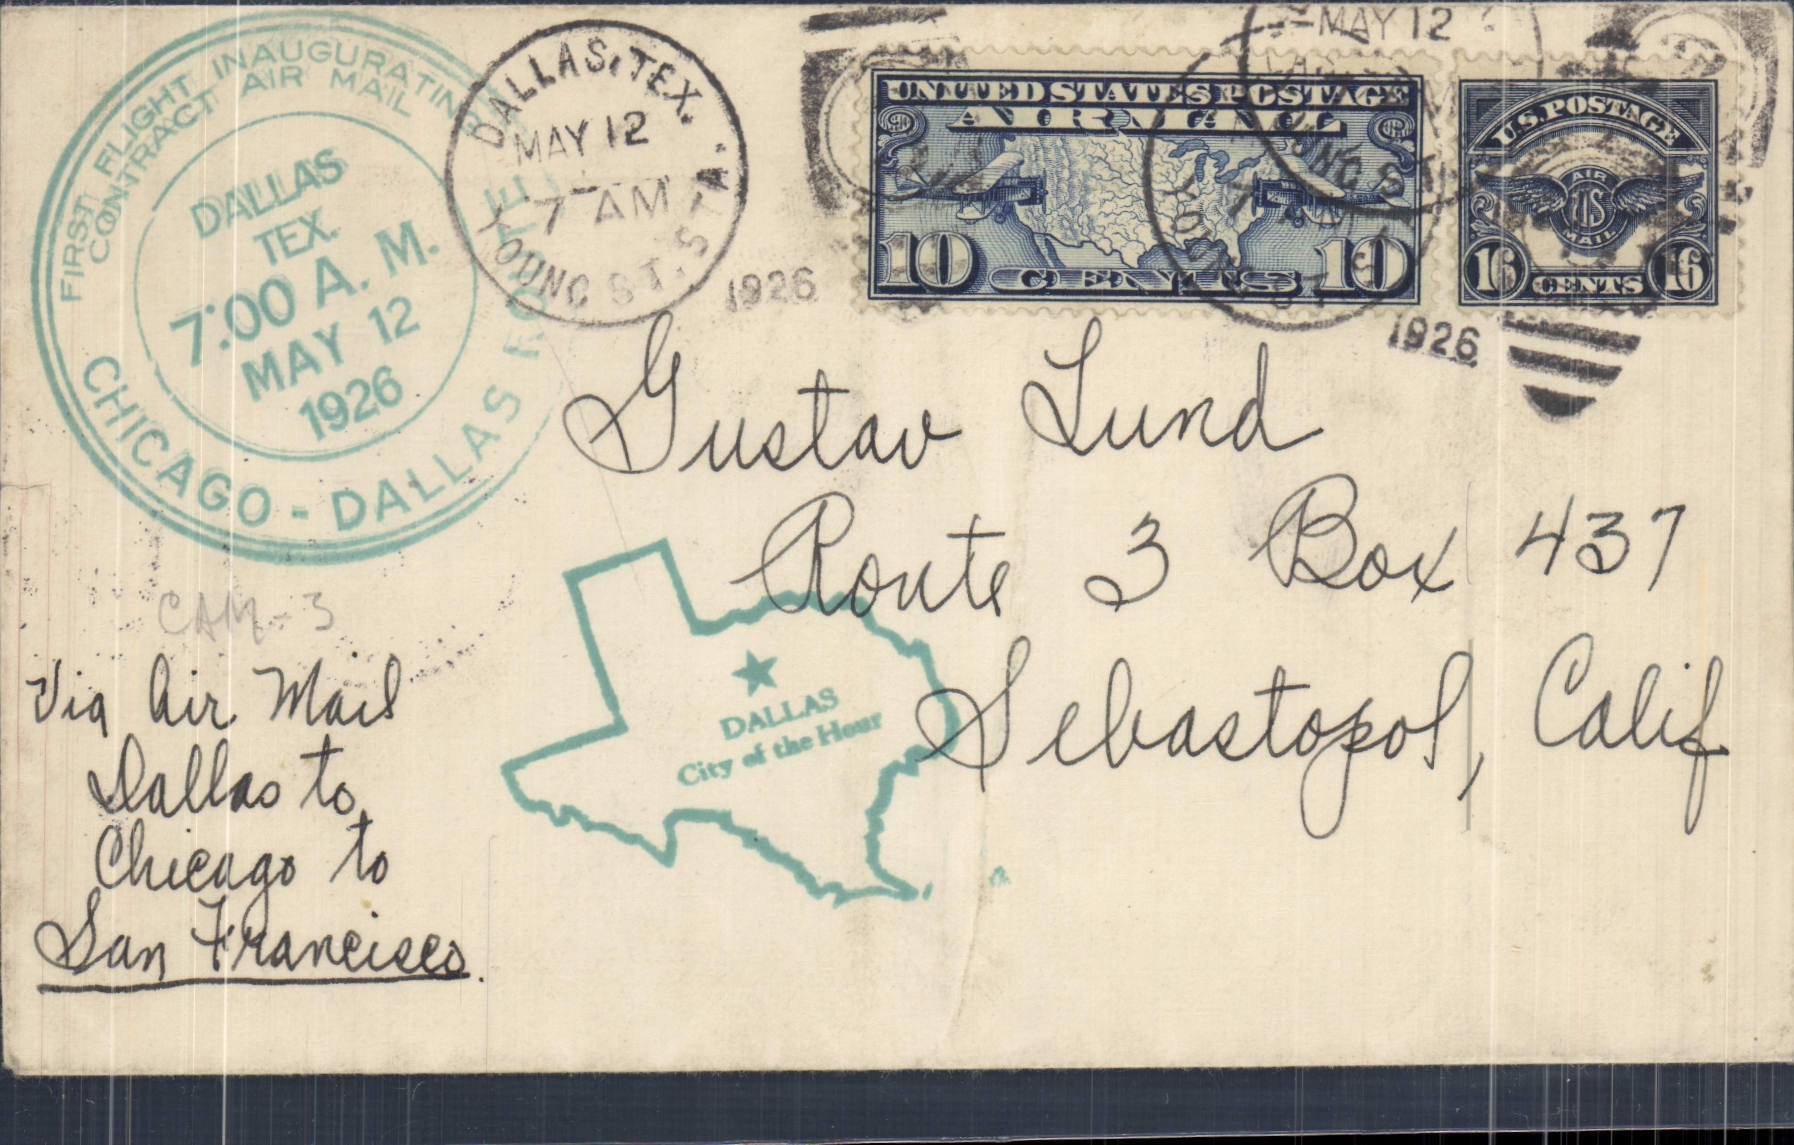 FIRST FLIGHT INAUGURATING
CONTRACT AIR MAIL
DALLAS
TEX.
7:00 A. M.
MAY 12
1926
CHICAGO - DALLAS ROUTE
DALLAS, TEX.
MAY 12
7 AM
YOUNG ST. STA.
1926
UNITED STATES POSTAGE
AIR MAIL
10 CENTS 10
MAY 12
YOUNG ST.
1926
U.S. POSTAGE
AIR
US
MAIL
16 CENTS 16
Gustav Lund
Route 3 Box 437
Sebastopol, Calif
CAM-3
Via Air Mail
Dallas to
Chicago to
San Francisco.
DALLAS
City of the Hour